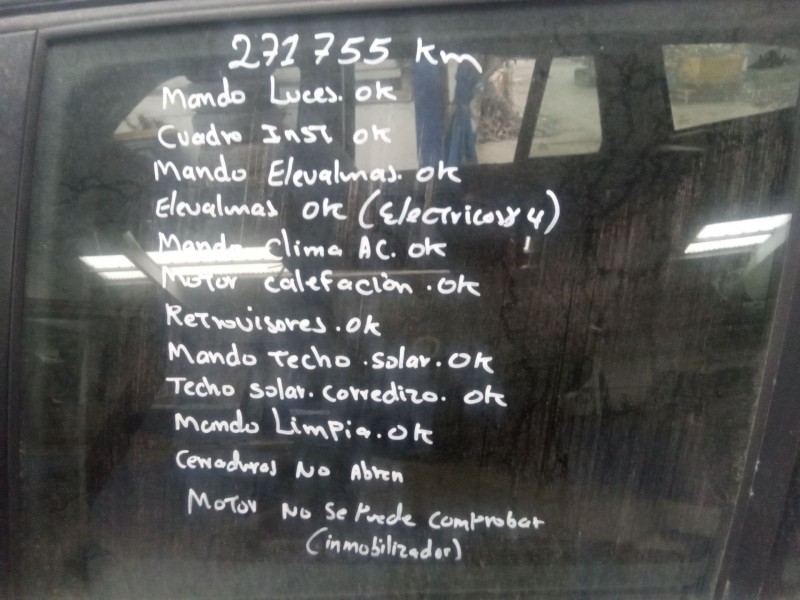 271755 km
Mando Luces. ok
Cuadro Inst ok
Mando Elevalunas. ok
Elevalunas ok (Electricosx4)
Mando clima AC. ok
Motor calefación. ok
Retrovisores. ok
Mando techo. solar. ok
Techo solar. corredizo. ok
Mando Limpia. ok
Cerraduras No Abren
Motor No Se Puede comprobar
(inmobilizador)